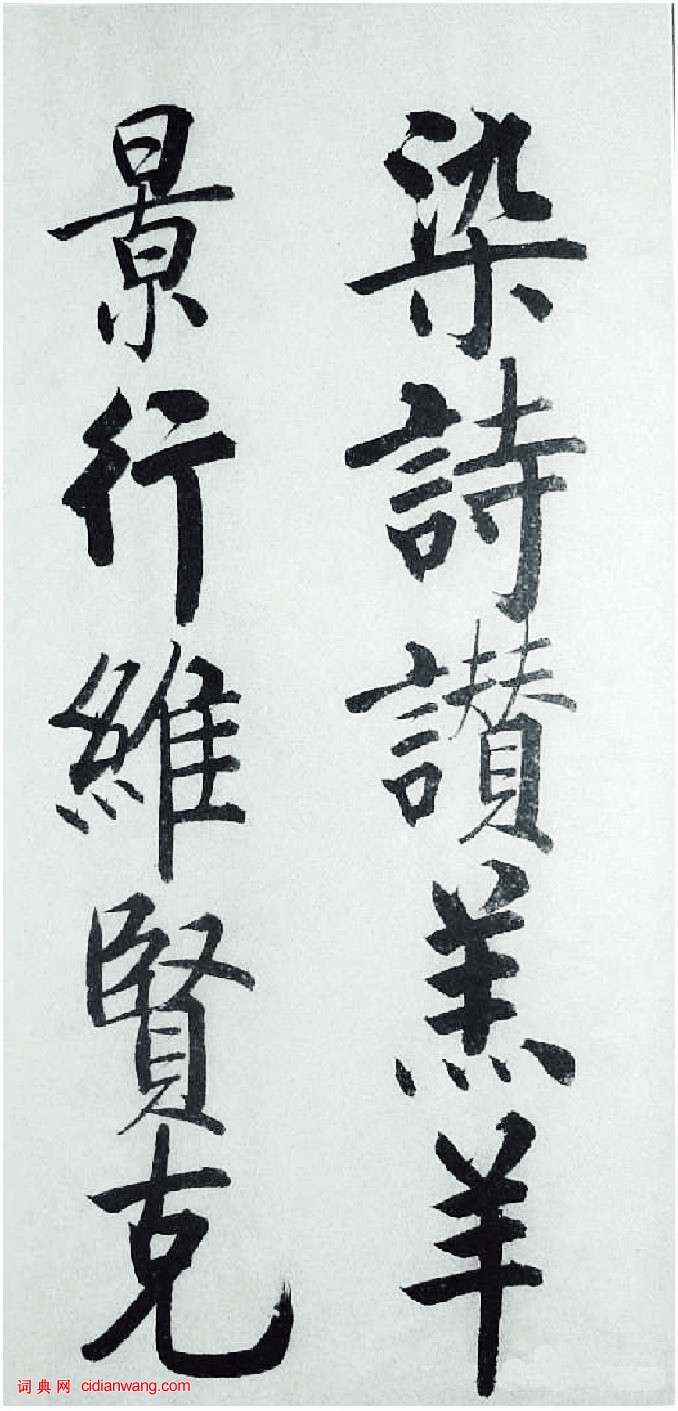 染詩讃羔羊
景行維賢克
词典网 cidianwang.com